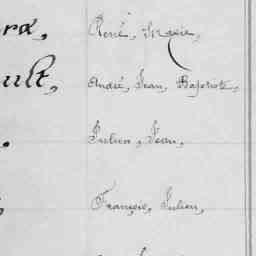 René, Marie,
ult, André, Jean, Baptiste,
Julien, Jean,
François, Julien,